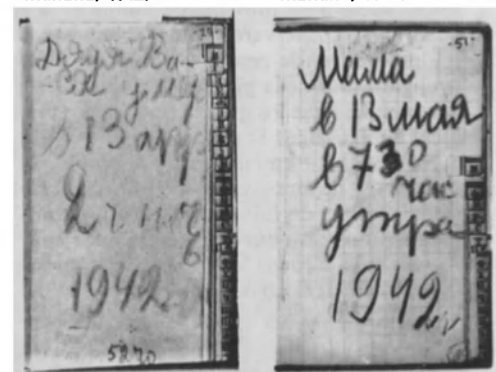 Дядя Ва-
ся ум
в 13 апр
2 ч ноч
ь
1942 г
Мама
в 13 мая
в 7 30
час
утра
1942 г